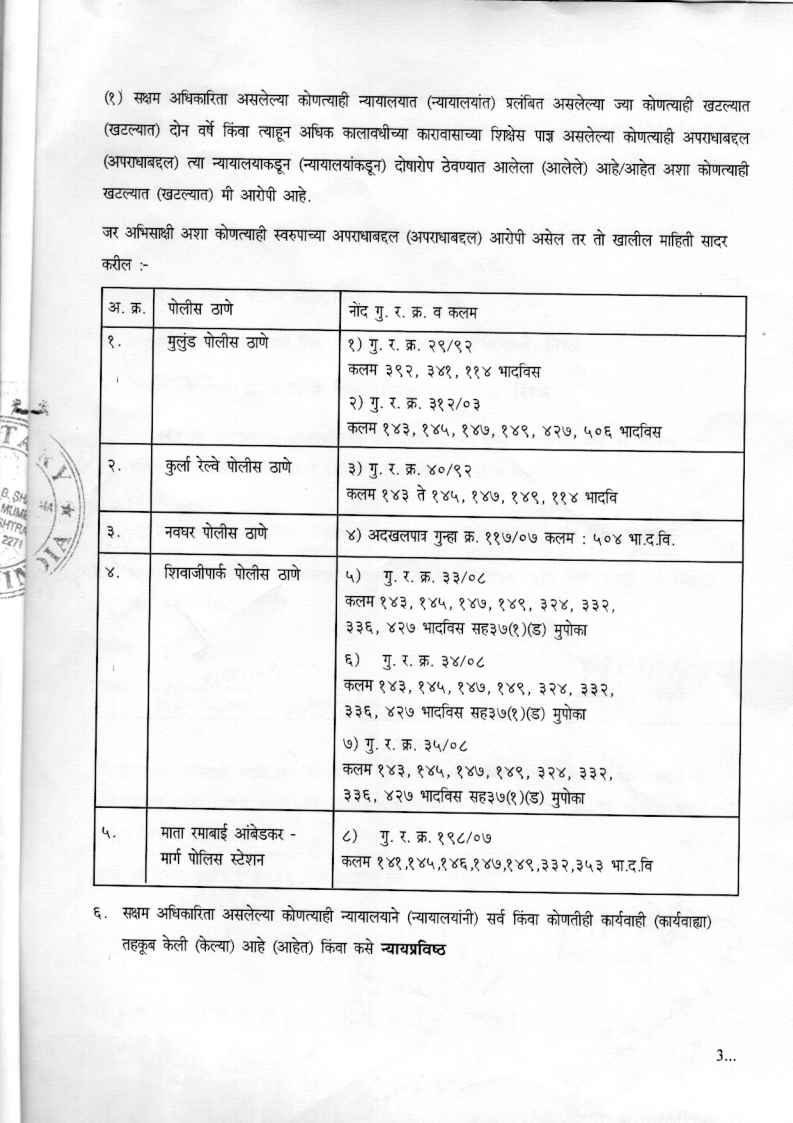 (१) सक्षम अधिकारिता असलेल्या कोणत्याही न्यायालयात (न्यायालयांत) प्रलंबित असलेल्या ज्या कोणत्याही खटल्यात
(खटल्यात) दोन वर्षे किंवा त्याहून अधिक कालावधीच्या कारावासाच्या शिक्षेस पात्र असलेल्या कोणत्याही अपराधाबद्दल
(अपराधाबद्दल) त्या न्यायालयाकडून (न्यायालयांकडून) दोषारोप ठेवण्यात आलेला (आलेले) आहे/आहेत अशा कोणत्याही
खटल्यात (खटल्यात) मी आरोपी आहे.
जर अभिसाक्षी अशा कोणत्याही स्वरुपाच्या अपराधाबद्दल (अपराधाबद्दल) आरोपी असेल तर तो खालील माहिती सादर
करील :-
अ. क्र. पोलीस ठाणे नोंद गु. र. क्र. व कलम
१. मुलुंड पोलीस ठाणे १) गु. र. क्र. २९/९२
कलम ३९२, ३४१, ११४ भादविस
२) गु. र. क्र. ३१२/०३
कलम १४३, १४५, १४७, १४९, ४२७, ५०६ भादविस
२. कुर्ला रेल्वे पोलीस ठाणे ३) गु. र. क्र. ४०/९२
कलम १४३ ते १४५, १४७, १४९, ११४ भादवि
३. नवघर पोलीस ठाणे ४) अदखलपात्र गुन्हा क्र. ११७/०७ कलम : ५०४ भा.द.वि.
४. शिवाजीपार्क पोलीस ठाणे ५) गु. र. क्र. ३३/०८
कलम १४३, १४५, १४७, १४९, ३२४, ३३२,
३३६, ४२७ भादविस सह३७(१)(ड) मुपोका
६) गु. र. क्र. ३४/०८
कलम १४३, १४५, १४७, १४९, ३२४, ३३२,
३३६, ४२७ भादविस सह३७(१)(ड) मुपोका
७) गु. र. क्र. ३५/०८
कलम १४३, १४५, १४७, १४९, ३२४, ३३२,
३३६, ४२७ भादविस सह३७(१)(ड) मुपोका
५. माता रमाबाई आंबेडकर - ८) गु. र. क्र. १९८/०७
मार्ग पोलिस स्टेशन कलम १४१,१४५,१४६,१४७,१४९,३३२,३५३ भा.द.वि
६. सक्षम अधिकारिता असलेल्या कोणत्याही न्यायालयाने (न्यायालयांनी) सर्व किंवा कोणतीही कार्यवाही (कार्यवाह्या)
तहकूब केली (केल्या) आहे (आहेत) किंवा कसे न्यायप्रविष्ठ
3...